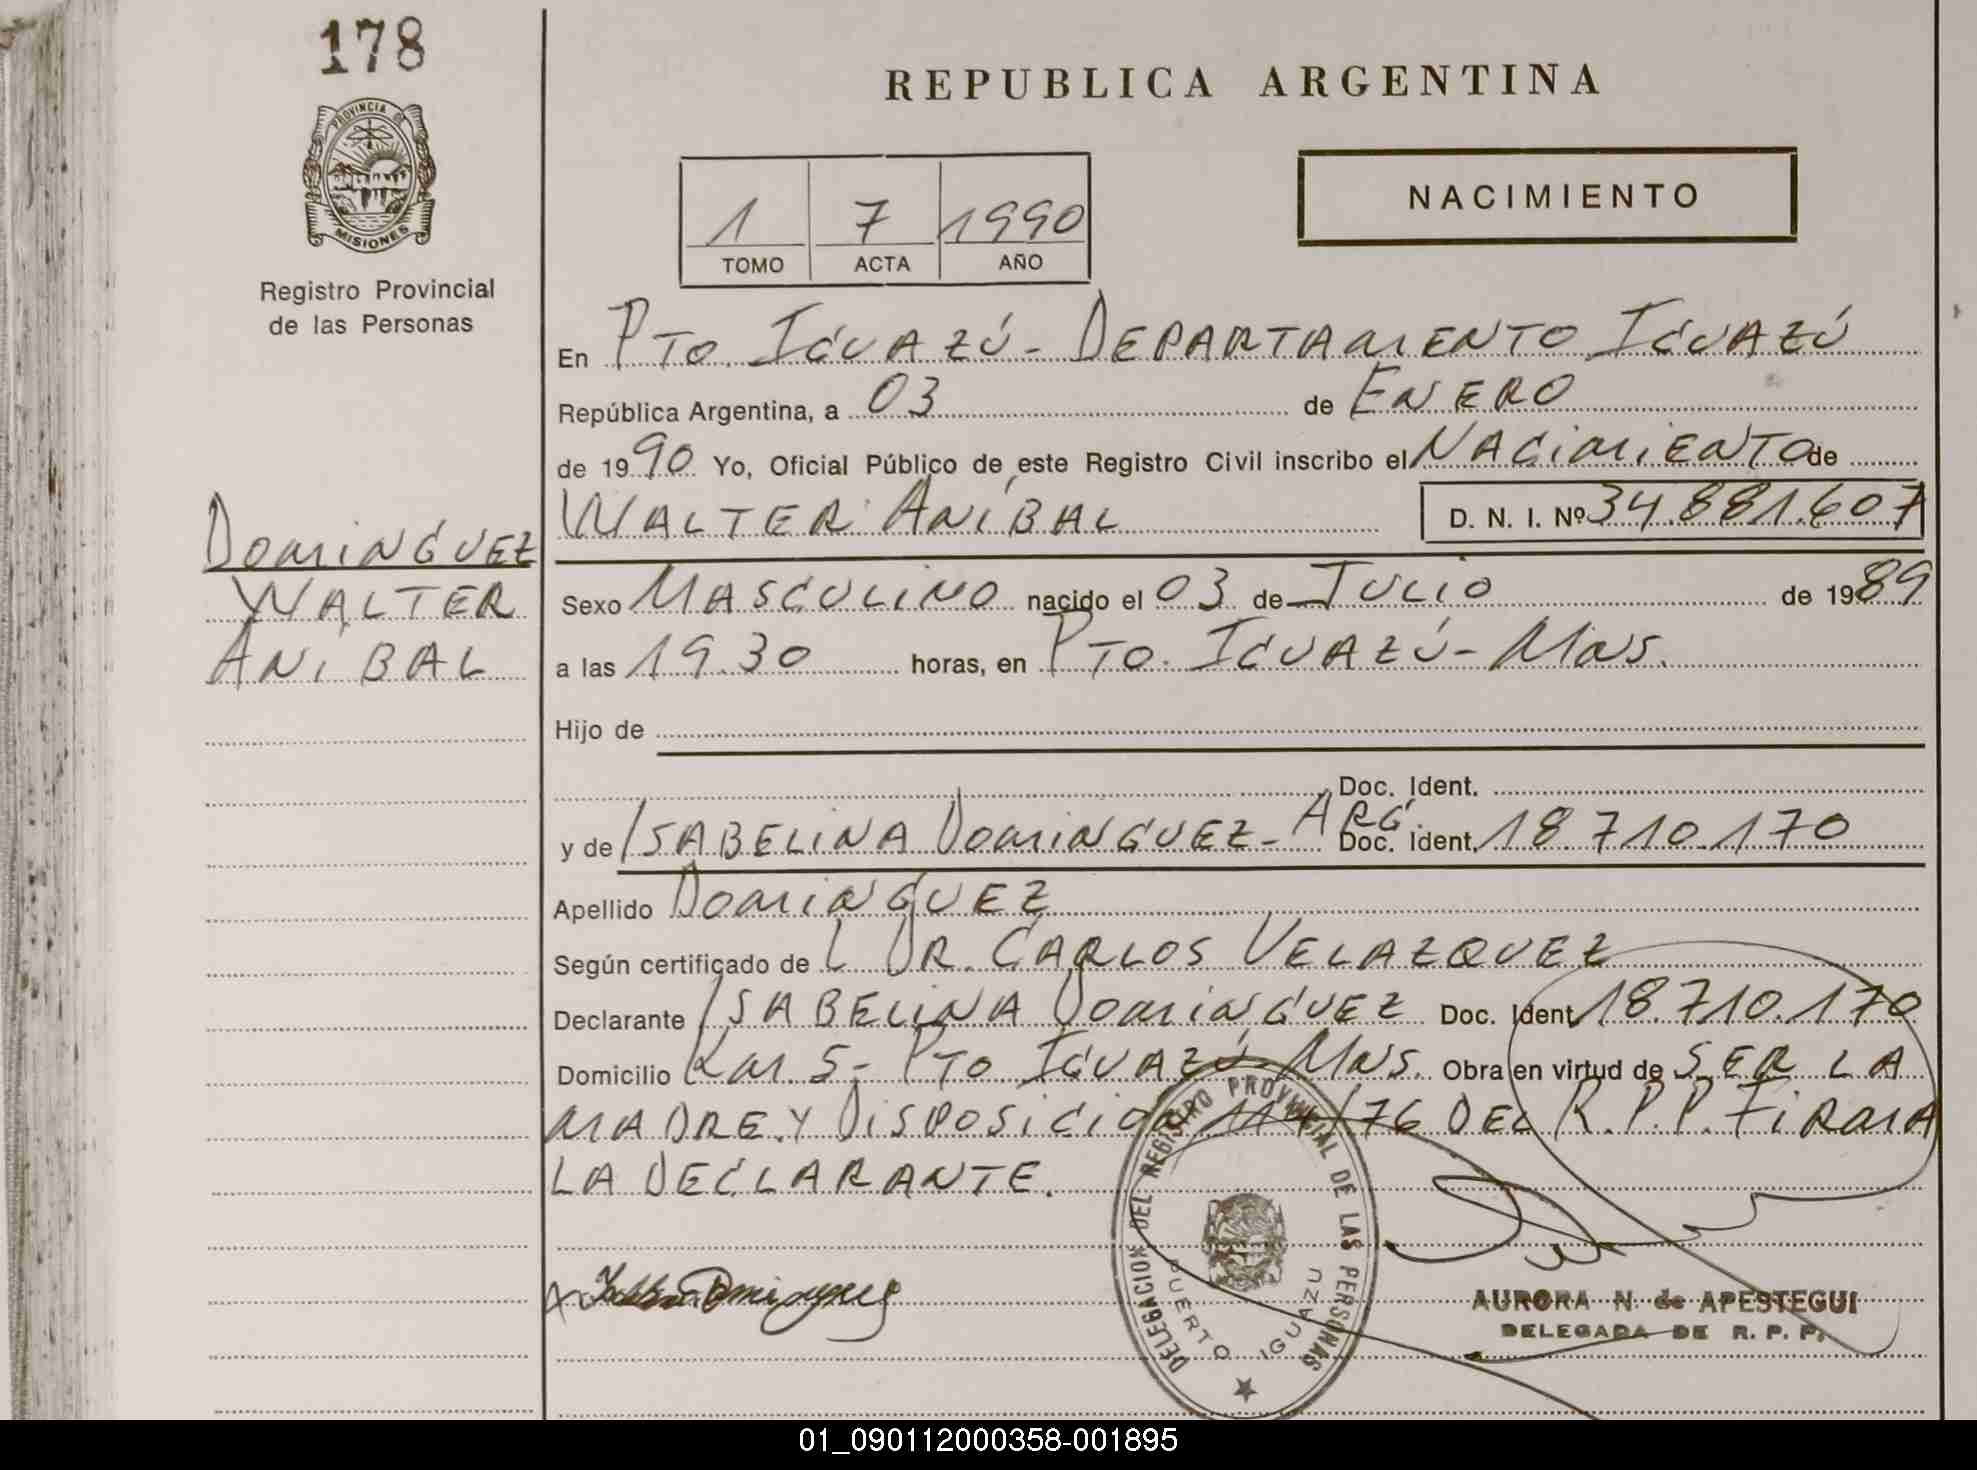 178
REPUBLICA ARGENTINA
PROVINCIA DE
MISIONES
Registro Provincial
de las Personas
NACIMIENTO
1 7 1990
TOMO ACTA AÑO
En PTO. IGUAZÚ - DEPARTAMENTO IGUAZÚ
República Argentina, a 03 de ENERO
de 1990 Yo, Oficial Público de este Registro Civil inscribo el NACIMIENTO de
WALTER ANÍBAL D. N. I. Nº 34.881.607
DOMINGUEZ
WALTER
ANIBAL
Sexo MASCULINO nacido el 03 de JULIO de 1989
a las 19.30 horas, en PTO. IGUAZÚ - MNS.
Hijo de
Doc. Ident.
y de ISABELINA DOMINGUEZ - ARG. Doc. Ident. 18.710.170
Apellido DOMINGUEZ
Según certificado de L DR. CARLOS VELAZQUEZ
Declarante ISABELINA DOMINGUEZ Doc. Ident. 18.710.170
Domicilio KM. 5 - PTO IGUAZÚ MNS. Obra en virtud de SER LA
MADRE Y DISPOSICION 114/76 DEL R.P.P. FIRMA
LA DECLARANTE.
DELEGACION DEL REGISTRO PROVINCIAL DE LAS PERSONAS
PUERTO IGUAZU
Dominguez
AURORA N. de APESTEGUI
DELEGADA DE R. P. P.
01_090112000358-001895